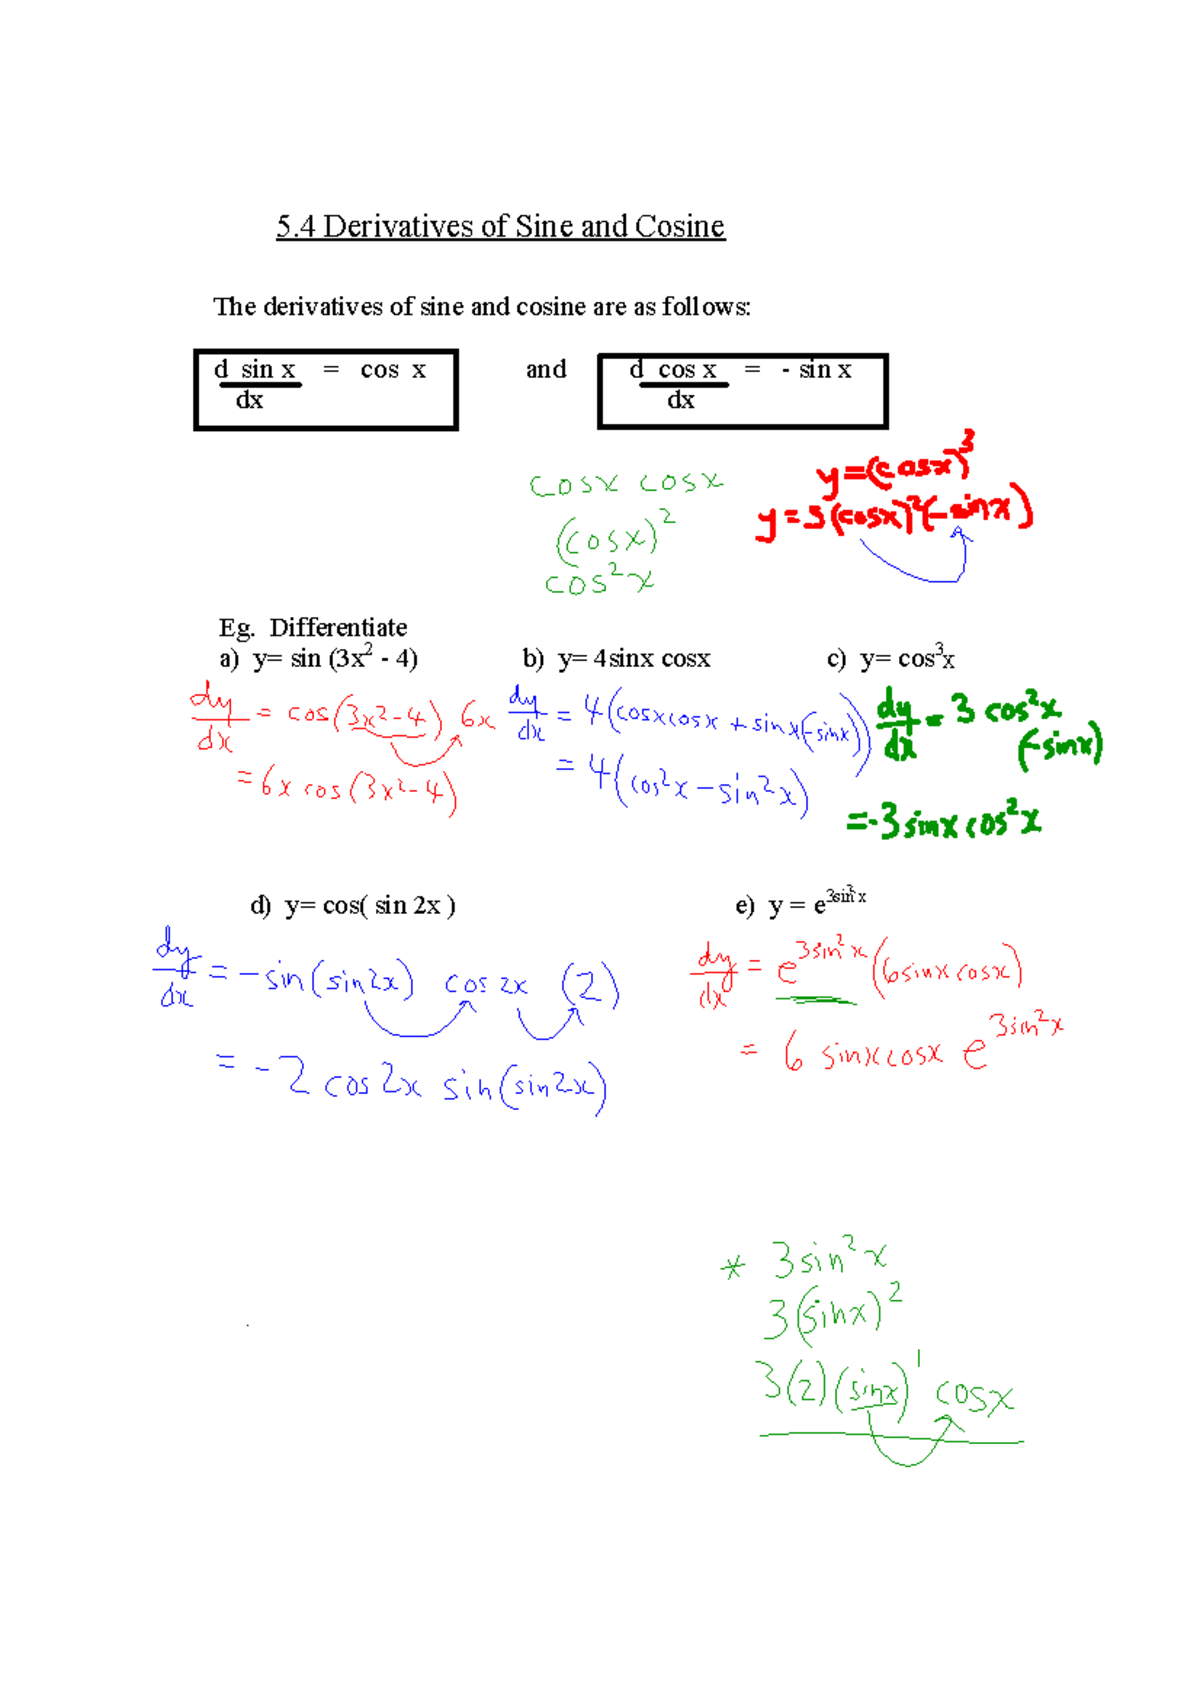 5.4 Derivatives of Sine and Cosine
The derivatives of sine and cosine are as follows:
d sin x = cos x and d cos x = - sin x
dx dx
cosx cosx
(cosx)²
cos²x
y=(cosx)³
y=3(cosx)²(-sinx)
Eg. Differentiate
a) y= sin (3x² - 4) b) y= 4sinx cosx c) y= cos³x
dy/dx = cos(3x²-4) 6x
= 6x cos(3x²-4)
dy/dx = 4(cosxcosx + sinx(-sinx))
= 4(cos²x - sin²x)
dy/dx = 3 cos²x
(-sinx)
=-3sinx cos²x
d) y= cos( sin 2x ) e) y = e^3sin²x
dy/dx = -sin(sin2x) cos 2x (2)
= -2 cos2x sin(sin2x)
dy/dx = e^3sin²x (6sinxcosx)
= 6 sinxcosx e^3sin²x
* 3sin²x
3(sinx)²
3(2)(sinx)¹ cosx